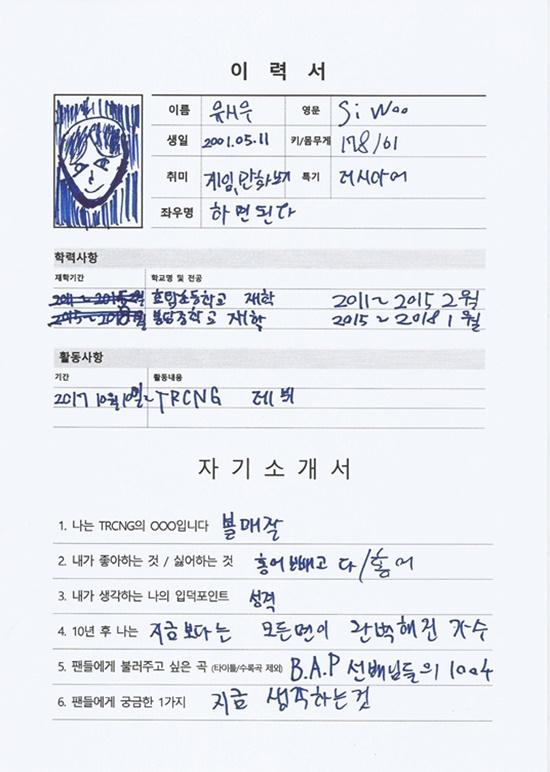 이 력 서
이름 유시우 영문 Si Woo
생일 2001.05.11 키/몸무게 178/61
취미 게임, 만화보기 특기 러시아어
좌우명 하면된다
학력사항
재학기간 학교명 및 전공
초등학교 재학 2011~2015 2월
봉담중학교 재학 2015~2018 1월
활동사항
기간 활동내용
2017 10월 10일~ TRCNG 데뷔
자 기 소 개 서
1. 나는 TRCNG의 OOO입니다 볼매잘
2. 내가 좋아하는 것 / 싫어하는 것 홍어 빼고 다/홍어
3. 내가 생각하는 나의 입덕포인트 성격
4. 10년 후 나는 지금보다는 모든면이 완벽해진 가수
5. 팬들에게 불러주고 싶은 곡 (타이틀/수록곡 제외) B.A.P 선배님들의 1004
6. 팬들에게 궁금한 1가지 지금 생각하는것